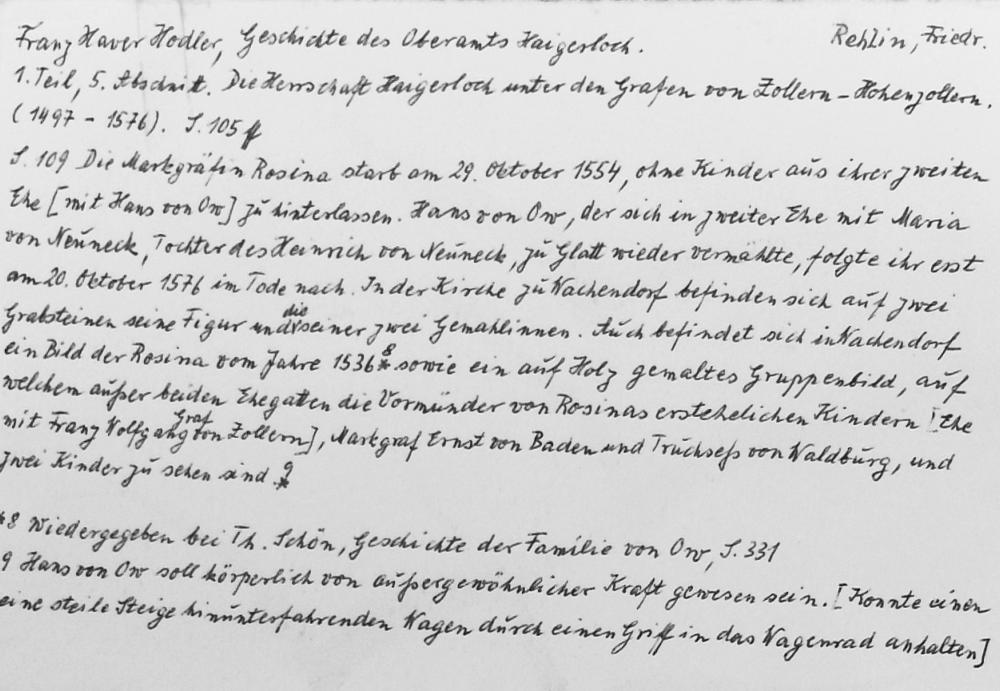 Franz Xaver Hodler, Geschichte des Oberamts Haigerloch. Rehlin, Friedr.
1. Teil, 5. Abschnitt. Die Herrschaft Haigerloch unter den Grafen von Zollern - Hohenzollern.
(1497 - 1576). S. 105 ff
S. 109 Die Markgräfin Rosina starb am 29. Oktober 1554, ohne Kinder aus ihrer zweiten
Ehe [mit Hans von Ow] zu hinterlassen. Hans von Ow, der sich in zweiter Ehe mit Maria
von Neuneck, Tochter des Heinrich von Neuneck, zu Glatt wieder vermählte, folgte ihr erst
am 20. Oktober 1576 im Tode nach. In der Kirche zu Wachendorf befinden sich auf zwei
Grabsteinen seine Figur und die seiner zwei Gemahlinnen. Auch befindet sich in Wachendorf
ein Bild der Rosina vom Jahre 1536 *8 sowie ein auf Holz gemaltes Gruppenbild, auf
welchem außer beiden Ehegatten die Vormünder von Rosinas erstehelichen Kindern [Ehe
mit Franz Wolfgang Graf von Zollern], Markgraf Ernst von Baden und Truchseß von Waldburg, und
zwei Kinder zu sehen sind. *9
*8 Wiedergegeben bei Th. Schön, Geschichte der Familie von Ow, S. 331
9 Hans von Ow soll körperlich von außergewöhnlicher Kraft gewesen sein. [Konnte einen
eine steile Steige hinunterfahrenden Wagen durch einen Griff in das Wagenrad anhalten]